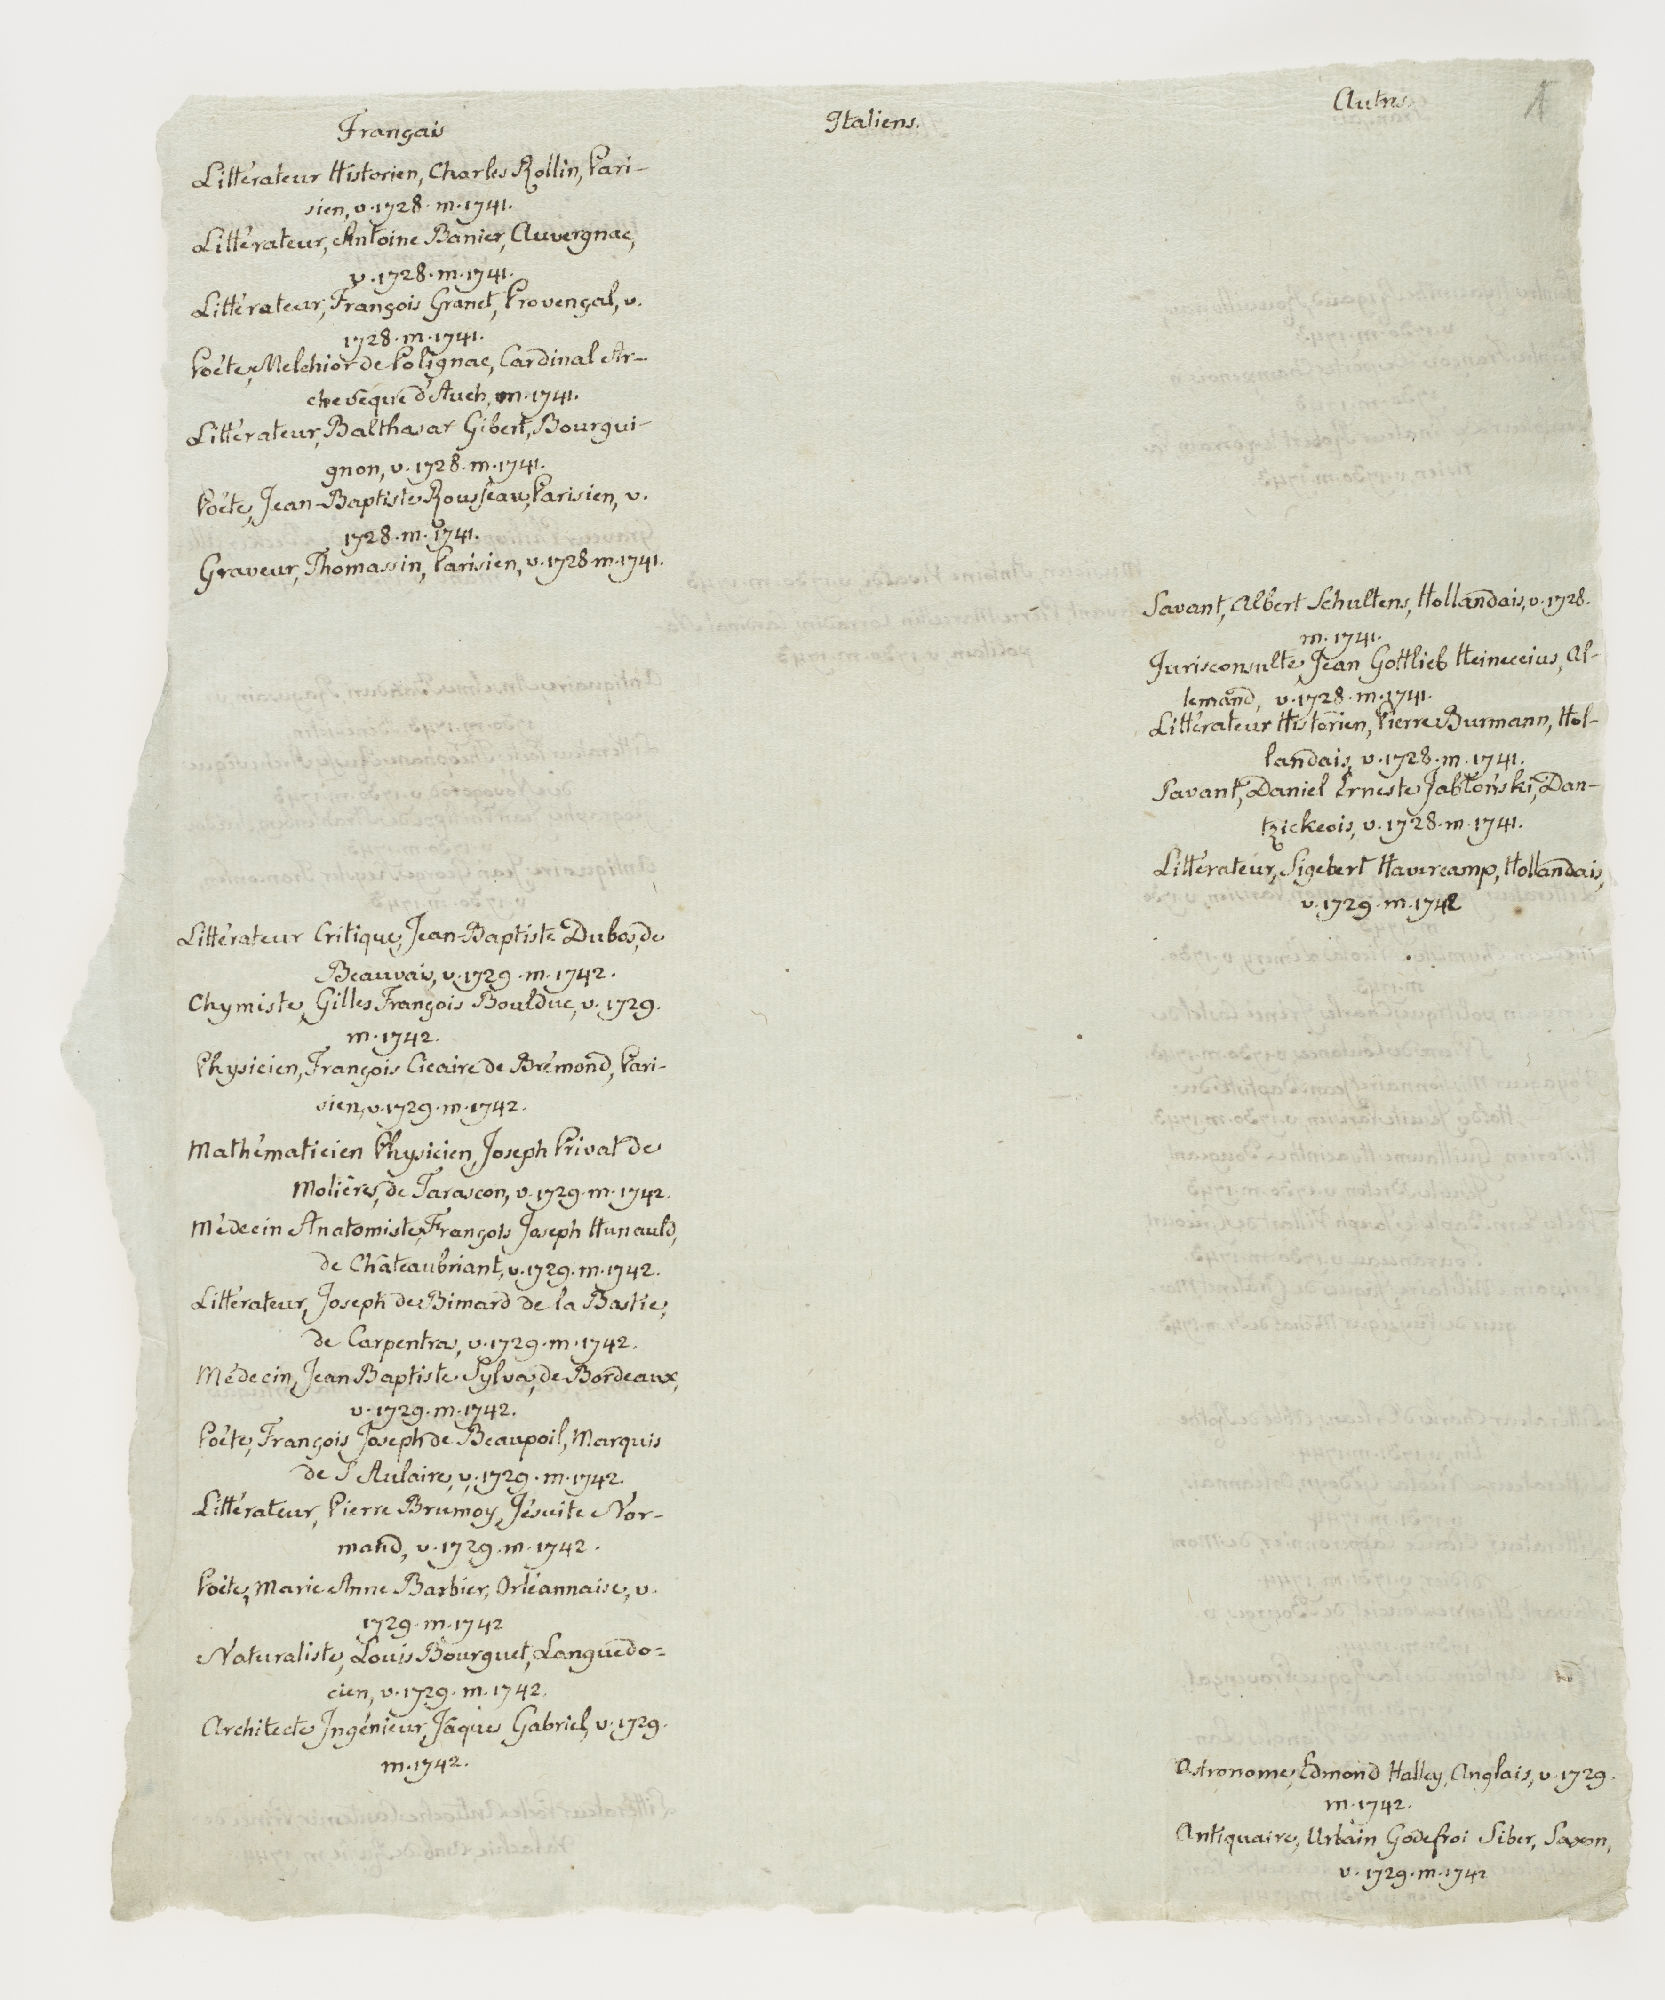 Français
Littérateur Historien, Charles Rollin, Pari-
sien, v. 1728. m. 1741.
Littérateur, Antoine Banier, Auvergnac,
v. 1728. m. 1741.
Littérateur, François Granet, Provençal, v.
1728. m. 1741.
Poéte, Melchior de Polignac, Cardinal Ar-
chevêque d'Auch, m. 1741.
Littérateur, Balthasar Gibert, Bourgui-
gnon, v. 1728. m. 1741.
Poéte, Jean-Baptiste Rousseau, Parisien, v.
1728. m. 1741.
Graveur, Thomassin, Parisien, v. 1728 m. 1741.
Littérateur Critique, Jean-Baptiste Dubos, de
Beauvais, v. 1729. m. 1742.
Chymiste, Gilles François Boulduc, v. 1729.
m. 1742.
Physicien, François Cicaire de Brémond, Pari-
sien, v. 1729. m. 1742.
Mathématicien Physicien, Joseph Privat de
Molières, de Tarascon, v. 1729. m. 1742.
Médecin Anatomiste, François Joseph Hunauld,
de Châteaubriant, v. 1729. m. 1742.
Littérateur, Joseph de Bimard de la Bastie,
de Carpentras, v. 1729. m. 1742.
Médecin, Jean Baptiste Sylva, de Bordeaux,
v. 1729. m. 1742.
Poéte, François Joseph de Beaupoil, Marquis
de S Aulaire, v. 1729. m. 1742.
Littérateur, Pierre Brumoy, Jésuite Nor-
mand, v. 1729. m. 1742.
Poéte, Marie Anne Barbier, Orléannaise, v.
1729. m. 1742
Naturaliste, Louis Bourguet, Languedo-
cien, v. 1729. m. 1742.
Architecte Ingénieur, Jaques Gabriel, v. 1729.
m. 1742.
Italiens.
Autres.
1
Savant, Albert Schultens, Hollandais, v. 1728.
m. 1741.
Jurisconsulte, Jean Gottlieb Heineccius, Al-
lemand, v. 1728. m. 1741.
Littérateur Historien, Pierre Burmann, Hol-
landais, v. 1728. m. 1741.
Savant, Daniel Erneste Jabłoński, Dan-
tzickeois, v. 1728. m. 1741.
Littérateur, Sigebert Havercamp, Hollandais,
v. 1729. m. 1742
Astronome, Edmond Halley, Anglais, v. 1729.
m. 1742.
Antiquaire, Urbain Godefroi Siber, Saxon,
v. 1729. m. 1742